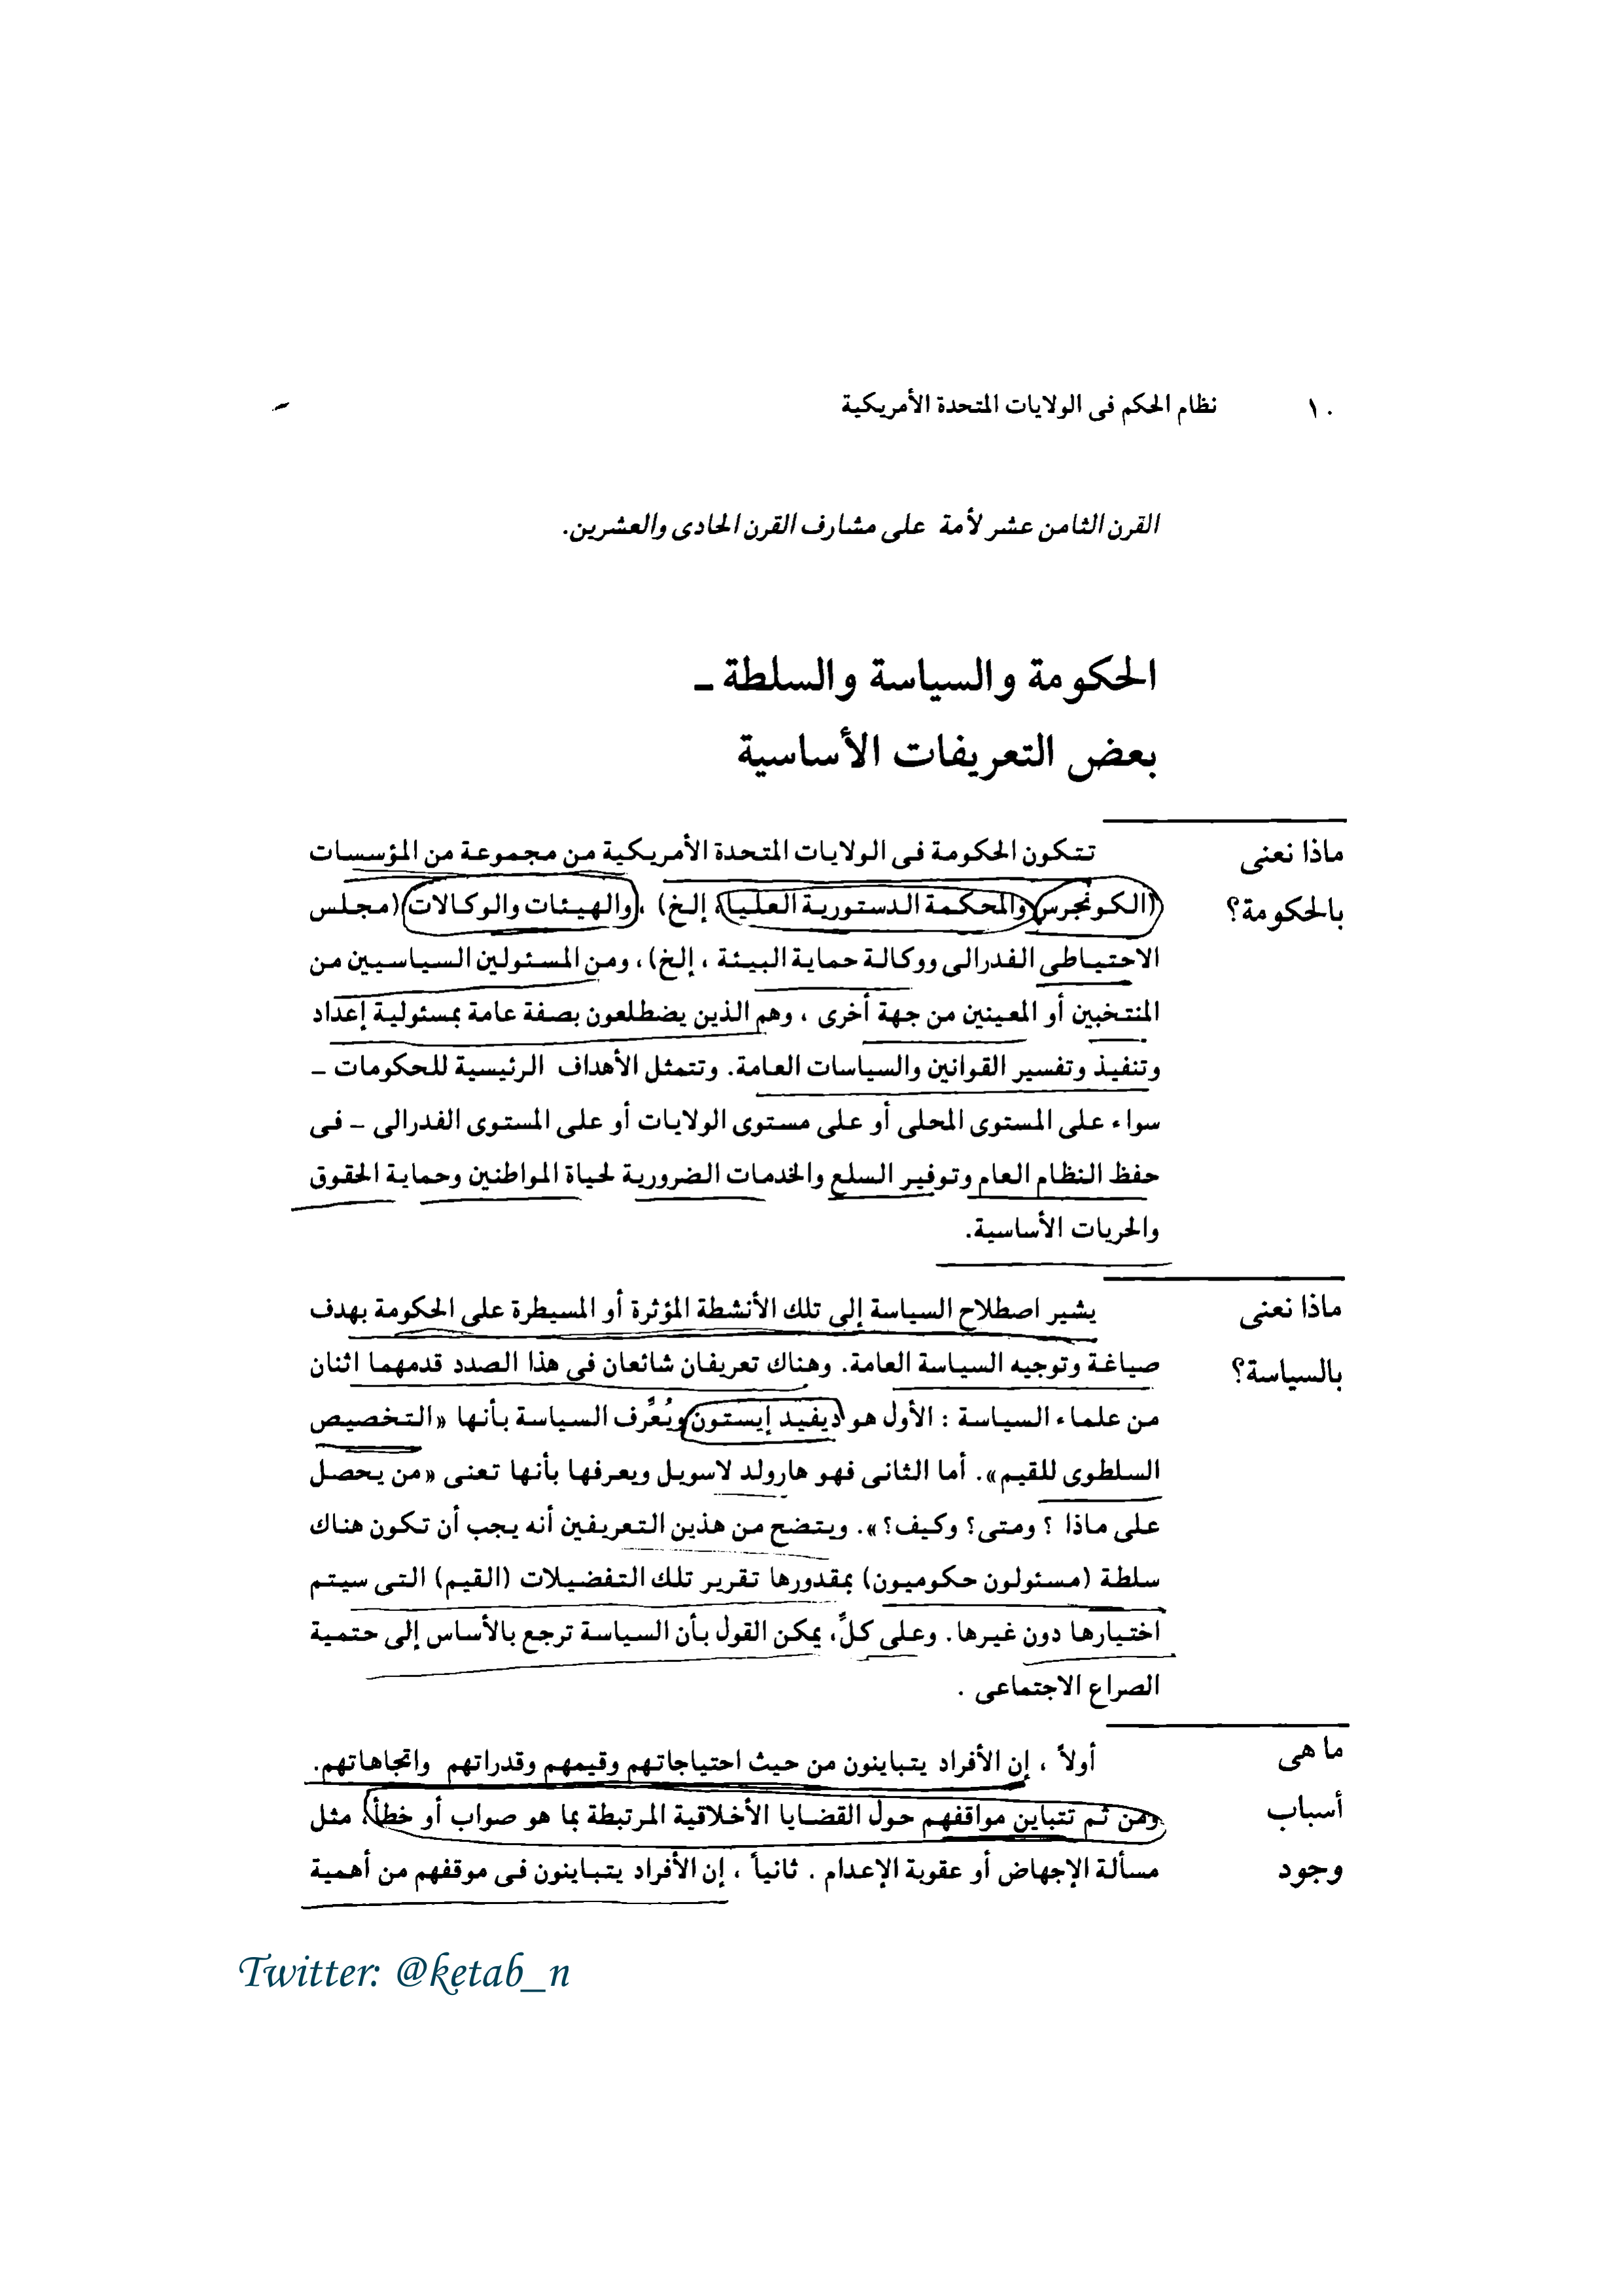 ١٠ نظام الحكم فى الولايات المتحدة الأمريكية
القرن الثامن عشر لأمة على مشارف القرن الحادى والعشرين.
الحكومة والسياسة والسلطة ـ
بعض التعريفات الأساسية
ماذا نعنى
بالحكومة؟
تتكون الحكومة فى الولايات المتحدة الأمريكية من مجموعة من المؤسسات
(الكونجرس والمحكمة الدستورية العليا، إلخ) ، والهيئات والوكالات (مجلس
الاحتياطى الفدرالى ووكالة حماية البيئة ، إلخ)، ومن المسئولين السياسيين من
المنتخبين أو المعينين من جهة أخرى ، وهم الذين يضطلعون بصفة عامة بمسئولية إعداد
وتنفيذ وتفسير القوانين والسياسات العامة. وتتمثل الأهداف الرئيسية للحكومات ـ
سواء على المستوى المحلى أو على مستوى الولايات أو على المستوى الفدرالى ـ فى
حفظ النظام العام وتوفير السلع والخدمات الضرورية لحياة المواطنين وحماية الحقوق
والحريات الأساسية.
ماذا نعنى
بالسياسة؟
يشير اصطلاح السياسة إلى تلك الأنشطة المؤثرة أو المسيطرة على الحكومة بهدف
صياغة وتوجيه السياسة العامة. وهناك تعريفان شائعان فى هذا الصدد قدمهما اثنان
من علماء السياسة : الأول هو ديفيد إيستون ويُعَّرف السياسة بأنها «التخصيص
السلطوى للقيم». أما الثانى فهو هارولد لاسويل ويعرفها بأنها تعنى «من يحصل
على ماذا ؟ ومتى؟ وكيف؟». ويتضح من هذين التعريفين أنه يجب أن تكون هناك
سلطة (مسئولون حكوميون) بمقدورها تقرير تلك التفضيلات (القيم) التى سيتم
اختيارها دون غيرها. وعلى كلٍّ، يمكن القول بأن السياسة ترجع بالأساس إلى حتمية
الصراع الاجتماعى .
ما هى
أسباب
وجود
أولاً ، إن الأفراد يتباينون من حيث احتياجاتهم وقيمهم وقدراتهم واتجاهاتهم.
ومن ثم تتباين مواقفهم حول القضايا الأخلاقية المرتبطة بما هو صواب أو خطأ، مثل
مسألة الإجهاض أو عقوبة الإعدام . ثانياً ، إن الأفراد يتباينون فى موقفهم من أهمية
Twitter: @ketab_n